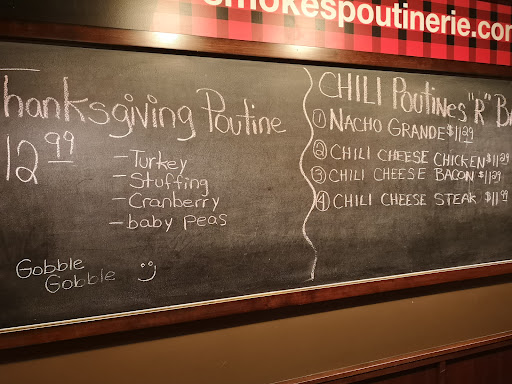 smokespoutinerie.com
Thanksgiving Poutine
12.99
- Turkey
- Stuffing
- Cranberry
- baby peas
Gobble
Gobble :)
CHILI Poutines "R" B
① NACHO GRANDE $11.29
② CHILI CHEESE CHICKEN $11.29
③ CHILI CHEESE BACON $11.29
④ CHILI CHEESE STEAK $11.99